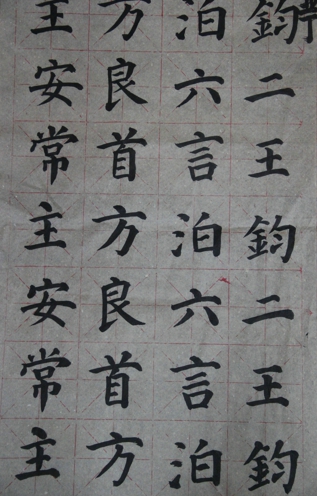 鈞二王鈞二王鈞
泊六言泊六言泊
方良首方良首方
主安常主安常主